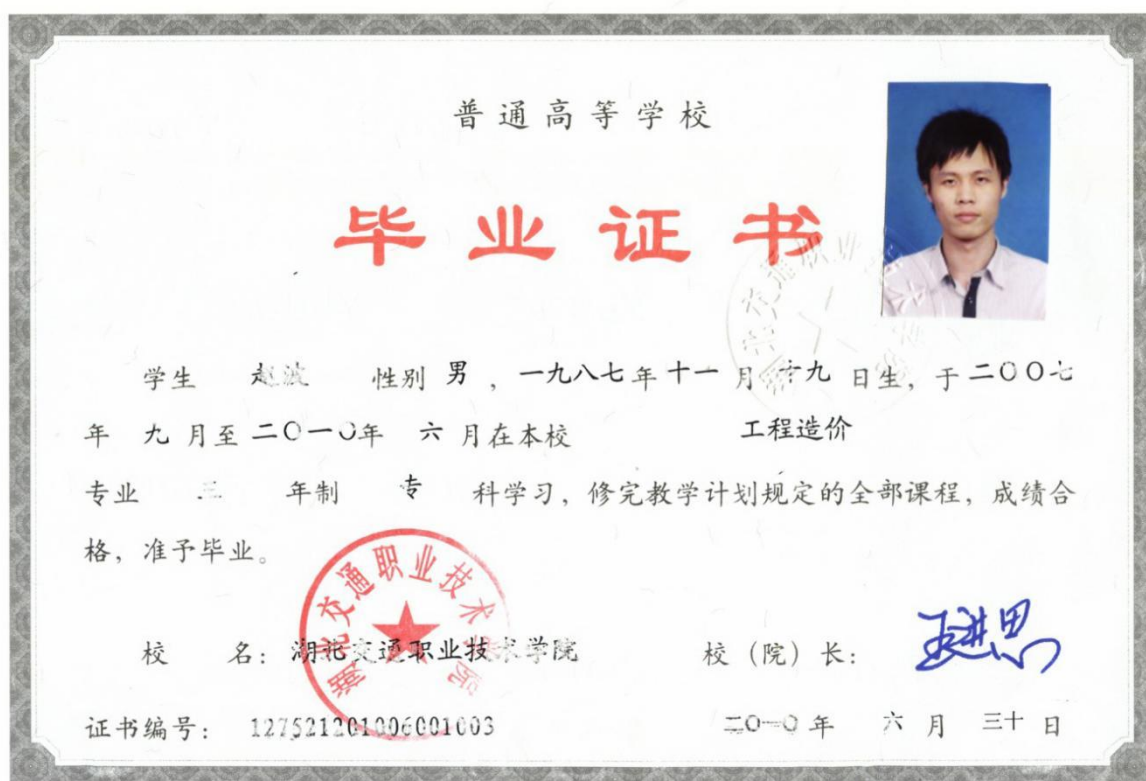 普通高等学校
毕业证书
学生 赵波 性别 男 ，一九八七年十一月 十九 日生，于二〇〇七
年 九 月至二〇一〇年 六 月在本校 工程造价
专业 三 年制 专 科学习，修完教学计划规定的全部课程，成绩合
格，准予毕业。
湖北交通职业技术学院
校 名：湖北交通职业技术学院 校（院）长：王进思
证书编号： 127521201006001003 二〇一〇年 六 月 三十 日